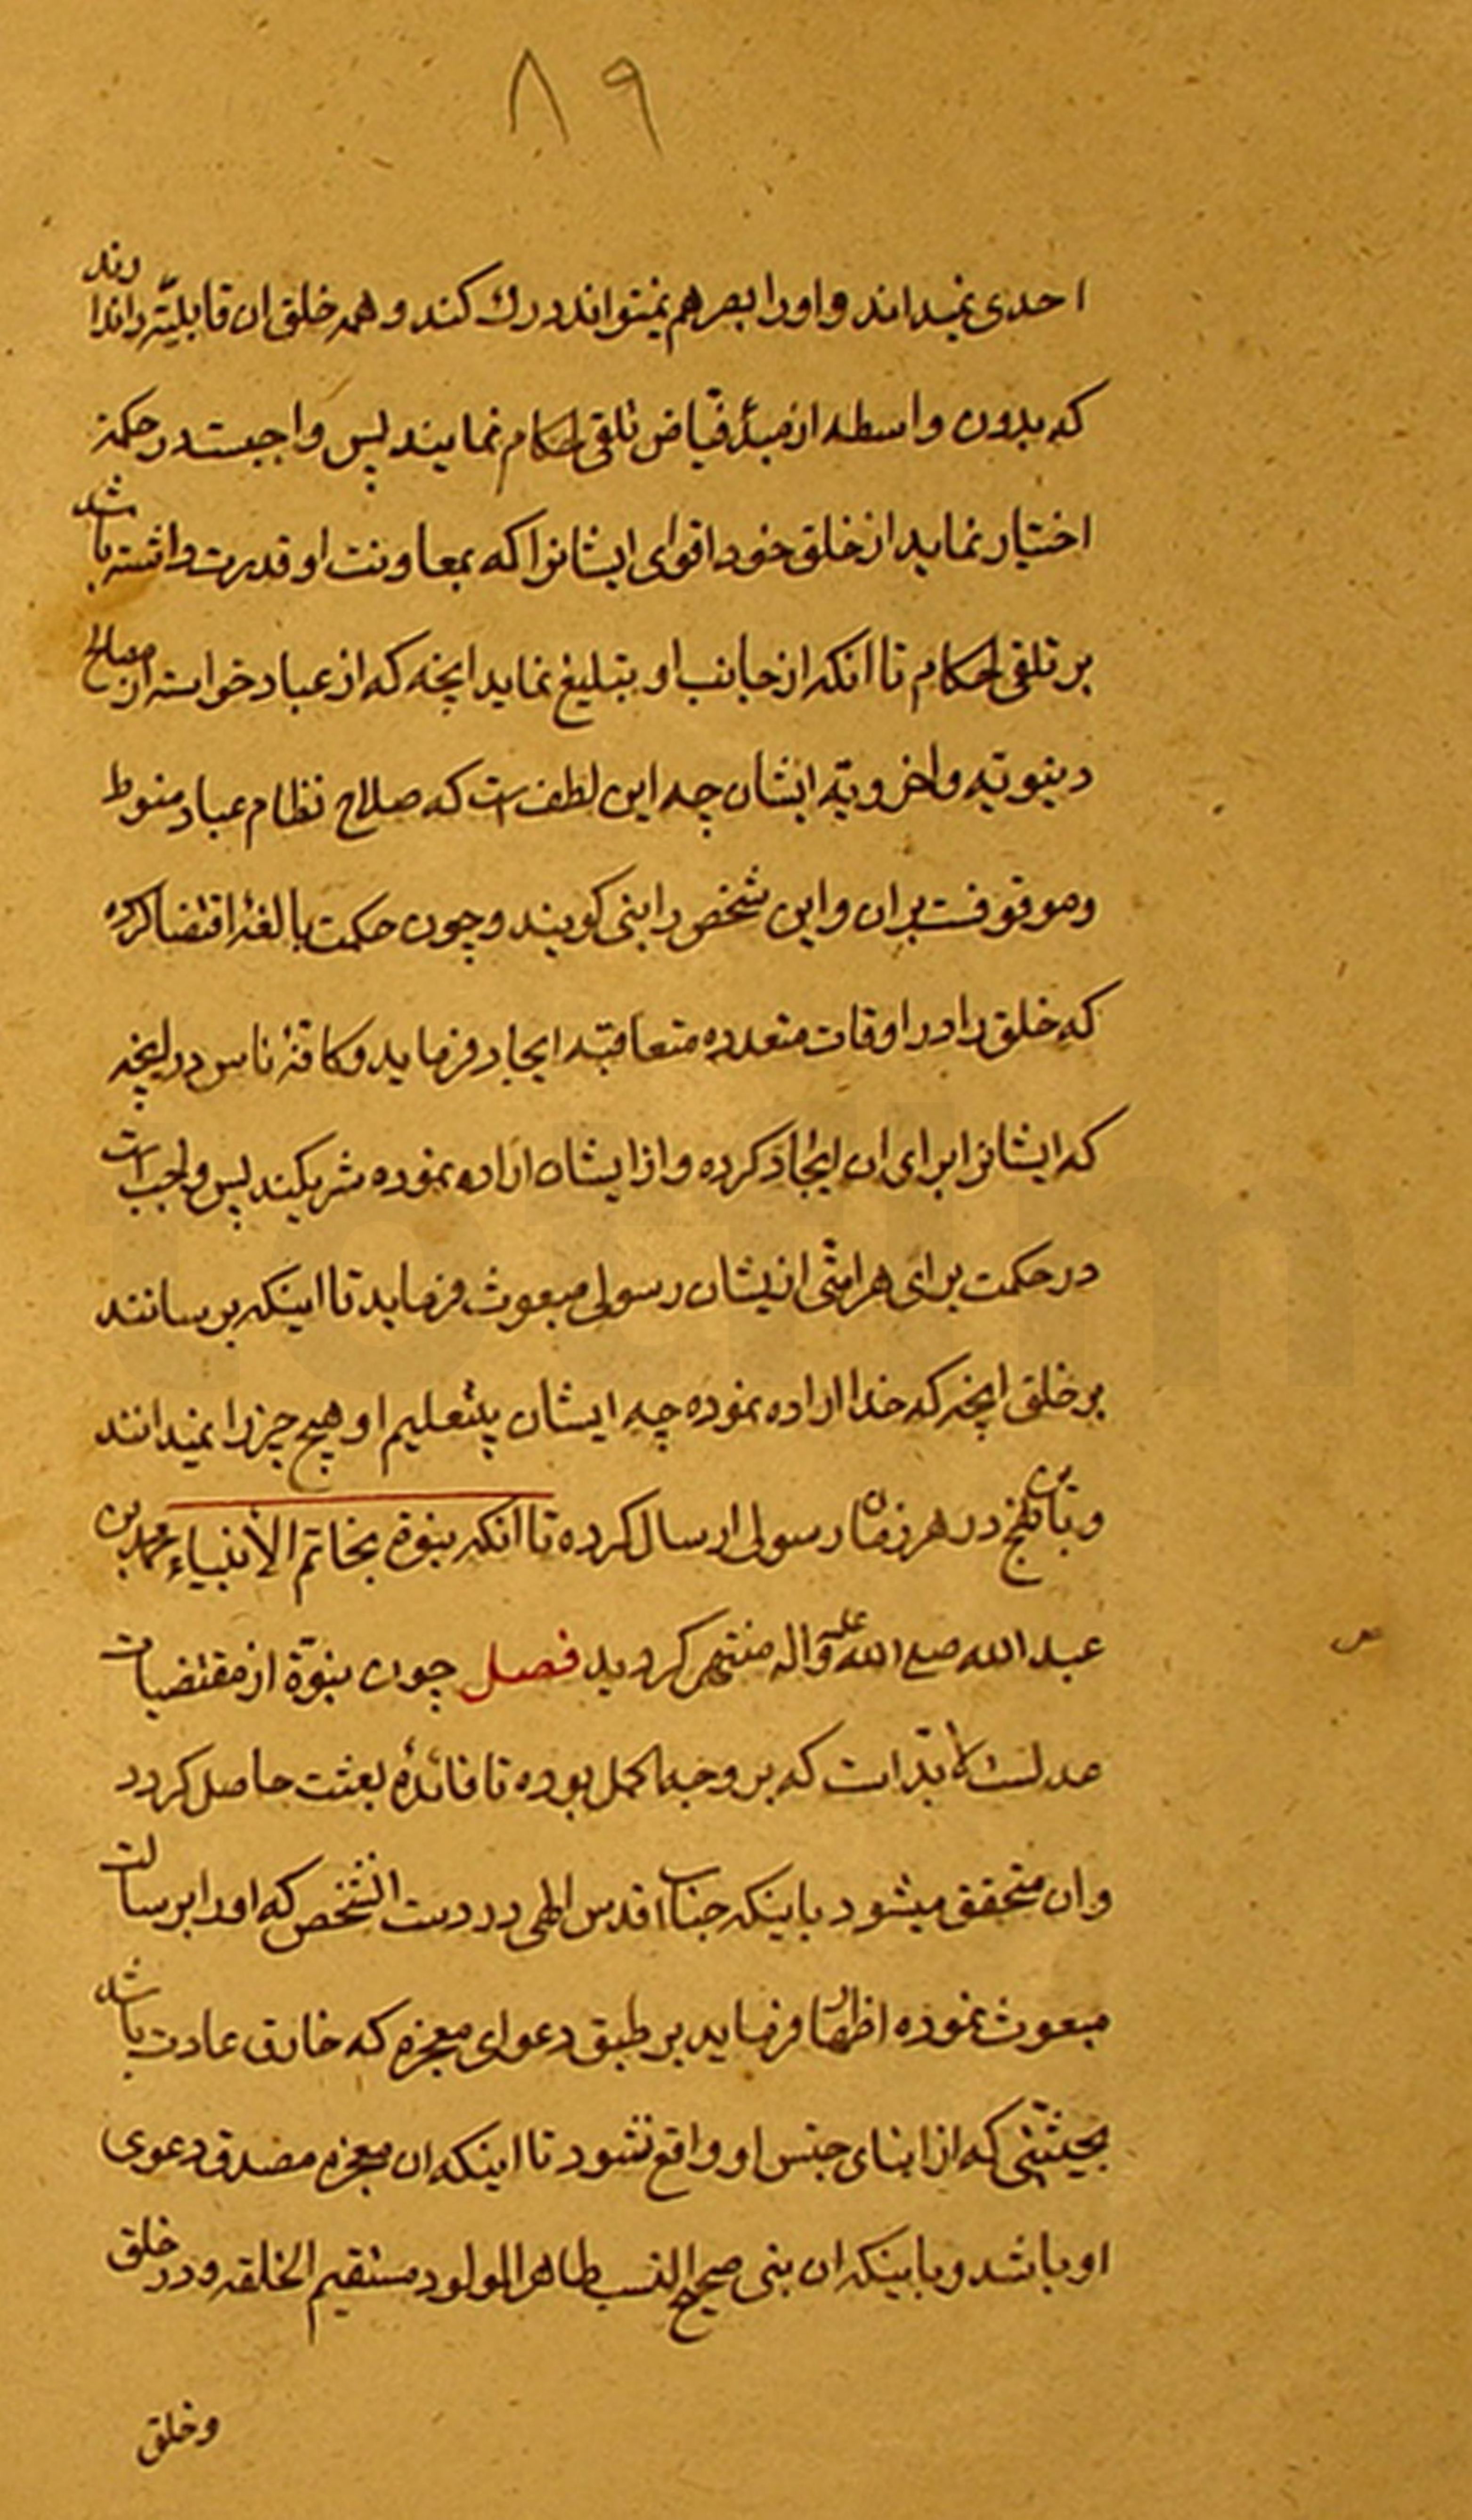 ٨٩
احدی نمیداند و اورا بصر هم نمیتواند درك كند و همه خلق ان قابلیّتر اندارند
که بدون واسطه از مبدٔ فیّاض تلقی احکام نمایند پس واجبست در حکمة
اختیار نماید از خلق خود اقوای ایشانرا که بمعاونت او قدرت داشته باشد
بر تلقی احکام تا انکه از جانب او تبلیغ نماید انچه که از عباد خواسته از مصالح
دینویّه و اخرویّه ایشان چه این لطف است که صلاح نظام عباد منوط
و موقوفست بران و این شخص را بنی کویند و چون حکمت بالغهٔ اقتضا کرده
که خلق را در اوقات متعدده متعاقبّه ایجاد فرماید و کافهٔ ناس در انچه
که ایشانرا برای ان ایجاد کرده و از ایشان اراده نموده شریکند پس واجب است
در حکمت برای هر امتّی ازیشان رسولی مبعوث فرماید تا اینکه برسانند
بر خلق انچه که خدا اراده نموده چه ایشان بتعلیم او هیچ چیز را نمیدانند
در هر زمان رسولی ارسال کرده تا انکه بنوة بخاتم الأنبیاء محمد بن
عبد الله صلی الله علیه و اله منتهی کردید فصل چون بنوّة از مقتضیات
عدلست لابدّ است که بر وجه اکمل بوده تا فائدهٔ بعثت حاصل کردد
و ان متحقق میشود باینکه جناب اقدس الهی در دست انشخص که اورا برسالت
مبعوث نموده اظهار فرماید بر طبق دعوای معجزه که خارق عادت باشد
بحیثیّتی که از ابنای جنس او واقع نشود تا اینکه ان معجزه مصدق دعوی
او باشد و باینکه ان بنی صحیح النسب طاهر المولود مستقیم الخلقه و در خلق
وخلق